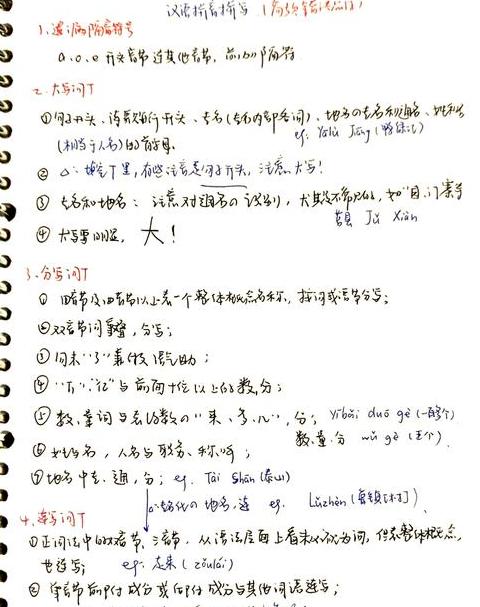 汉语拼音拼写(高频错误总结)
1、遗漏隔音符号
a.o.e 开头音节连其他音节,前加隔音符
2、大写词
①句子开头、诗歌每行开头、专名(专名内部各词)、地名的专名和通名、
(相当于人名)的首字母. eg: Yālù Jiāng (鸭绿江)
② 填空里,有些注音是句子开头,注意大写!
③ 专名和地名:注意对通名的识别,尤其是不常见的,如"县、门、寨等
莒县 Jǔ Xiàn
④ 大写要明显,大!
3、分写词
① 四音节及四音节以上表一个整体概念名称,按词或语节分写;
②双音节词重叠,分写;
③句末"了"兼做语气助;
④ "万""亿"与前面十位以上的数,分;
⑤ 数、量词与表约数的"来、多、几",分; yībǎi duō gè (一百多个)
数、量分 wǔ gè (五个)
⑥ 姓与名,人名与职务、称呼;
⑦ 地名中专、通,分; eg. Tài Shān (泰山)
的地名,连 eg.
4、连写词
①正词法中的双音节、三音节,从语法层面上看未必成为词,但表整体概念,
也连写; eg: 走来 (zǒulái)
② 单音节前附成分或后附成分与其他词语连写;